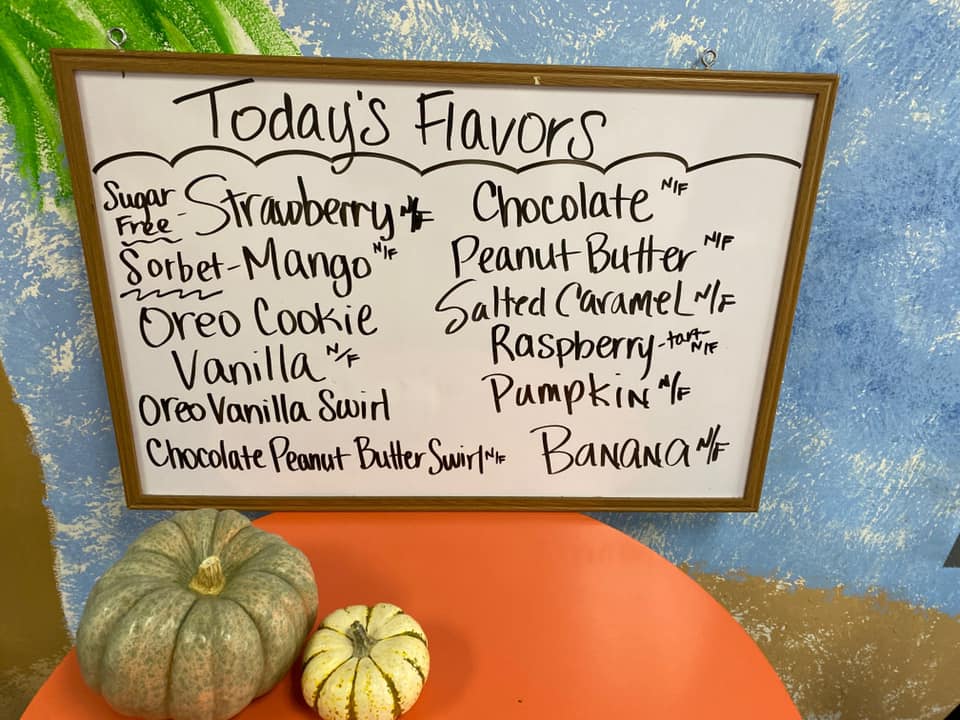 Today's Flavors
Sugar Free - Strawberry N/F
Sorbet - Mango N/F
Oreo Cookie
Vanilla N/F
Oreo Vanilla Swirl
Chocolate Peanut Butter Swirl N/F
Chocolate N/F
Peanut Butter N/F
Salted Caramel N/F
Raspberry - tart N/F
Pumpkin N/F
Banana N/F